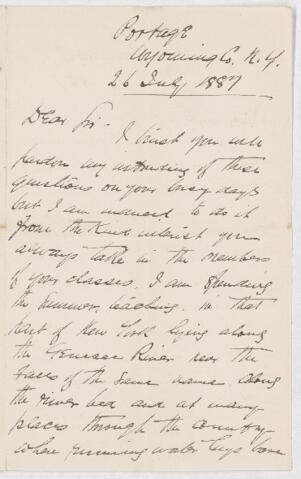 Portage
Wyoming Co. N.Y.
26 July 1887
Dear Sir-
I trust you will
pardon my intruding of these
questions on your busy days
but I am induced to do it
from the kind interest you
always take in the members
of your classes. I am spending
the summer, teaching, in that
part of New York lying along
the Genesee River near the
Falls of the same name. Along
the river bed and at many
places through the country
where running water lays bare